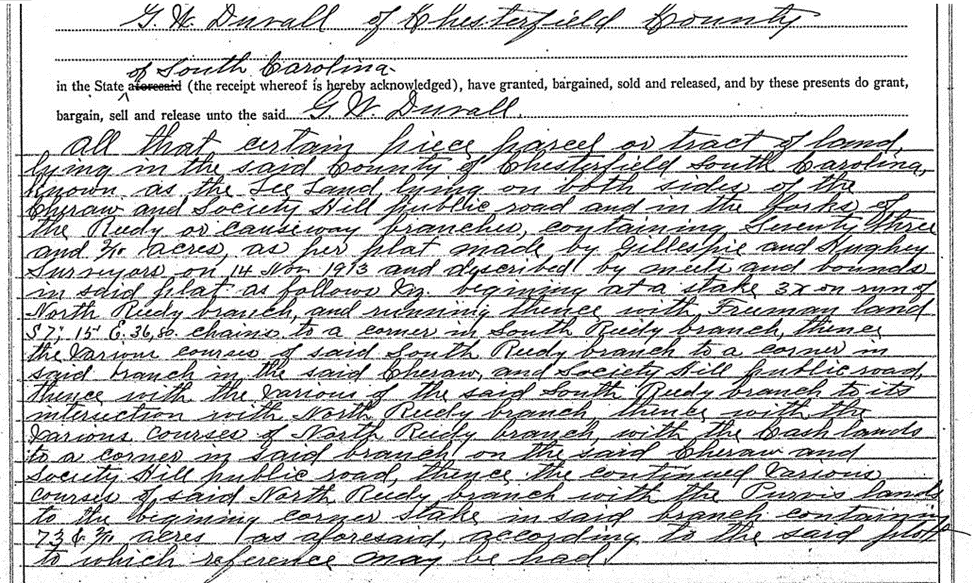 G. W. Duvall of Chesterfield County
of South Carolina
in the State aforesaid (the receipt whereof is hereby acknowledged), have granted, bargained, sold and released, and by these presents do grant,
bargain, sell and release unto the said G. W. Duvall.
All that certain piece parcel or tract of land,
lying in the said County of Chesterfield South Carolina,
known as the Lee Land, lying on both sides of the
Cheraw and Society Hill public road and in the forks of
the Reedy or causeway branches, containing Seventy three
and acres, as per plat made by Gillespie and Hughey
Surveyors on 14 Nov 1913 and described by meets and bounds
in said plat as follows Viz. begining at a stake 3x on run of
North Reedy branch, and running thence with Freeman land
S 15 E. 36,80. chains to a corner in South Reedy branch, thence
the Various courses of said South Reedy branch to a corner in
said branch in the said Cheraw, and Society Hill public road,
thence with the Various of the said South Reedy branch to its
intersection with North Reedy branch, thence with the
Various courses of North Reedy branch, with the Cash lands
to a corner in said branch on the said Cheraw and
Society Hill public road, thence the continued Various
courses of said North Reedy branch with the Purvis lands
to the begining corner stake in said branch containing
73 acres as aforesaid, according to the said plott
to which reference may be had.